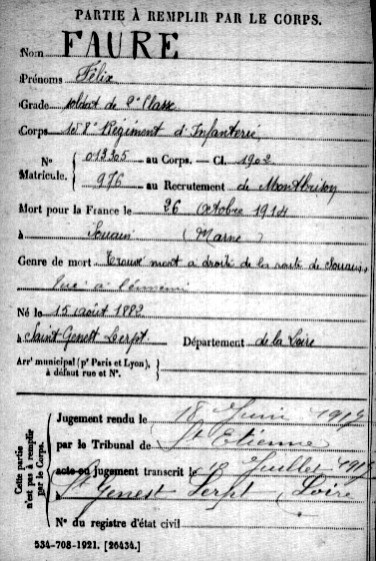 PARTIE À REMPLIR PAR LE CORPS.
Nom FAURE
Prénoms Félix
Grade soldat de 2e Classe
Corps 158e Régiment d'Infanterie
N° Matricule. { 013305 au Corps. — Cl. 1902
976 au Recrutement de Montbrison
Mort pour la France le 26 Octobre 1914
à Souain (Marne)
Genre de mort mort à droite de la route de Souain,
tué à l'ennemi
Né le 15 août 1882
à Saint Genest Lerpt Département de la Loire
Arrt municipal (pr Paris et Lyon), à défaut rue et N°. {
Cette partie n'est pas à remplir par le Corps.
Jugement rendu le 18 Juin 1919
par le Tribunal de St Etienne
acte ou jugement transcrit le Juillet 1919
à St Genest Lerpt (Loire
N° du registre d'état civil
534-708-1921. [26434.]